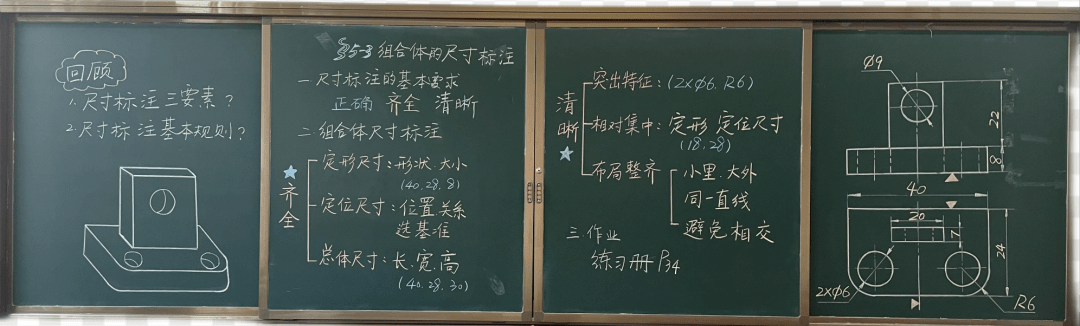 回顾
1.尺寸标注三要素?
2.尺寸标注基本规则?
§5-3 组合体的尺寸标注
一 尺寸标注的基本要求
正确 齐全 清晰
二 组合体尺寸标注
齐全
定形尺寸:形状 大小
(40.28.8)
定位尺寸:位置.关系
选基准
总体尺寸:长.宽.高
(40.28.30)
清晰
突出特征:(2xΦ6.R6)
相对集中:定形 定位尺寸
(18.28)
布局整齐
小里.大外
同一直线
避免相交
三.作业
练习册P34
Φ9
22
8
40
20
7
24
2xΦ6
R6